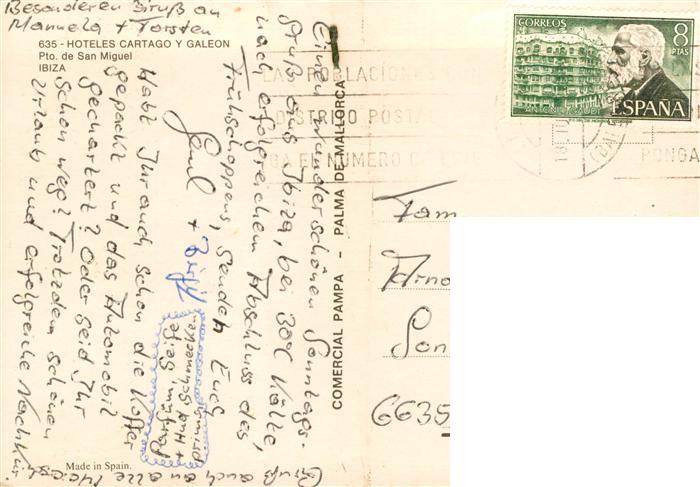 Besonderen Gruß an
Manuela + Torsten
635 - HOTELES CARTAGO Y GALEON
Pto. de San Miguel
IBIZA
Einen wunderschönen Sonntags-
gruß aus Ibiza, bei 30°C Kälte,
nach erfolgreichem Abschluss des
Frühschoppens, senden Euch
Habt Ihr auch schon die Koffer
gepackt und das Automobil
gechartert? Oder seid Ihr
schon weg? Trotzdem schönen
Urlaub und erfolgreiche Nachkur.
Flieg
+ Hund schmecken
prima
Gruß auch an alle
Made in Spain.
COMERCIAL PAMPA - PALMA DE MALLORCA
CORREOS
8
PTAS
ANTONIO GAUDI
ESPAÑA
LAS POBLACIONES
DISTRITO POSTAL
EL NUMERO
PONGA
Fam
Arno
Son
6635